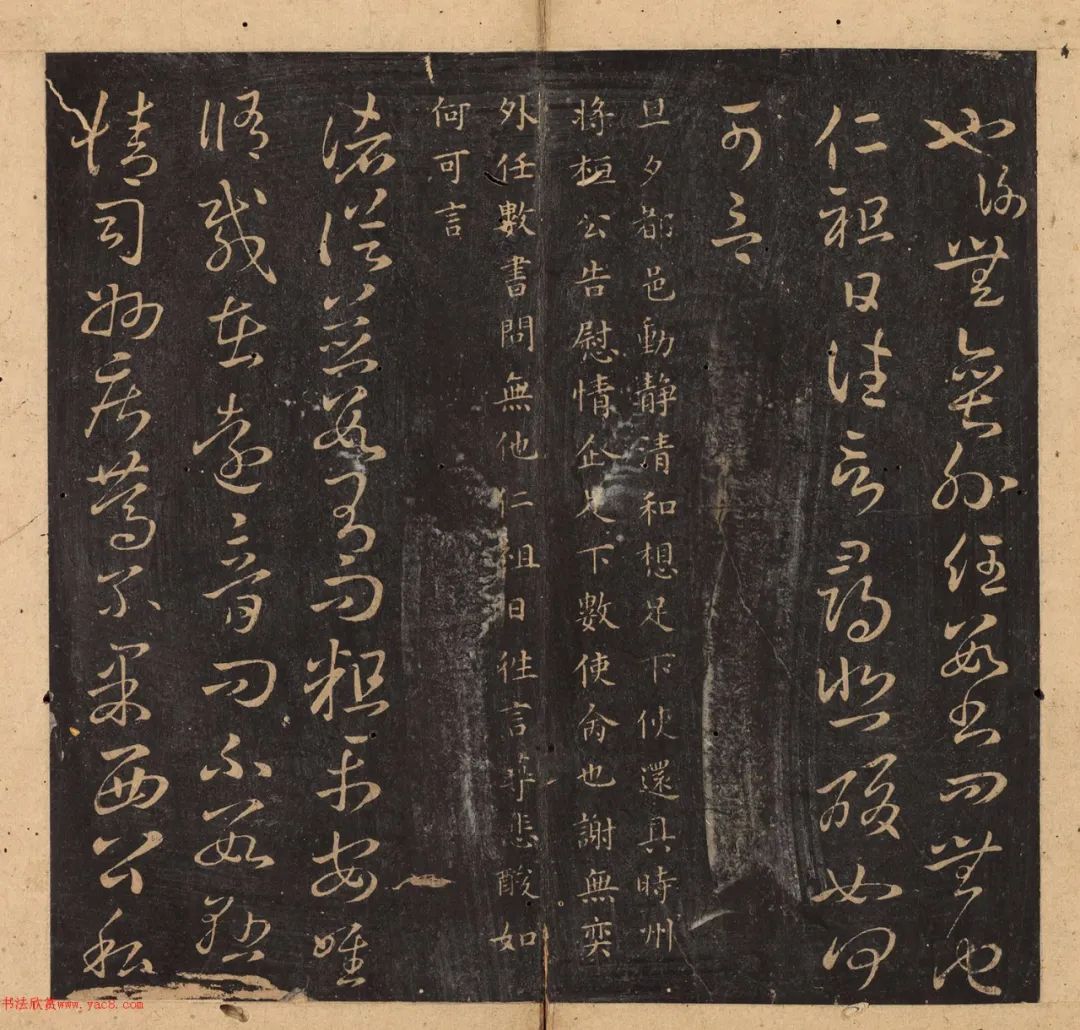 也謝無奕外任數書問無他
仁祖日往言尋悲酸如何
可言
旦夕都邑動靜清和想足下使還具時州
將桓公告慰情企足下數使命也謝無奕
外任數書問無他仁祖日往言尋悲酸如
何可言
諸從並數有問粗平安唯
脩載在遠音問不數懸
情司州疾篤不果西公私
书法欣赏www.yac8.com